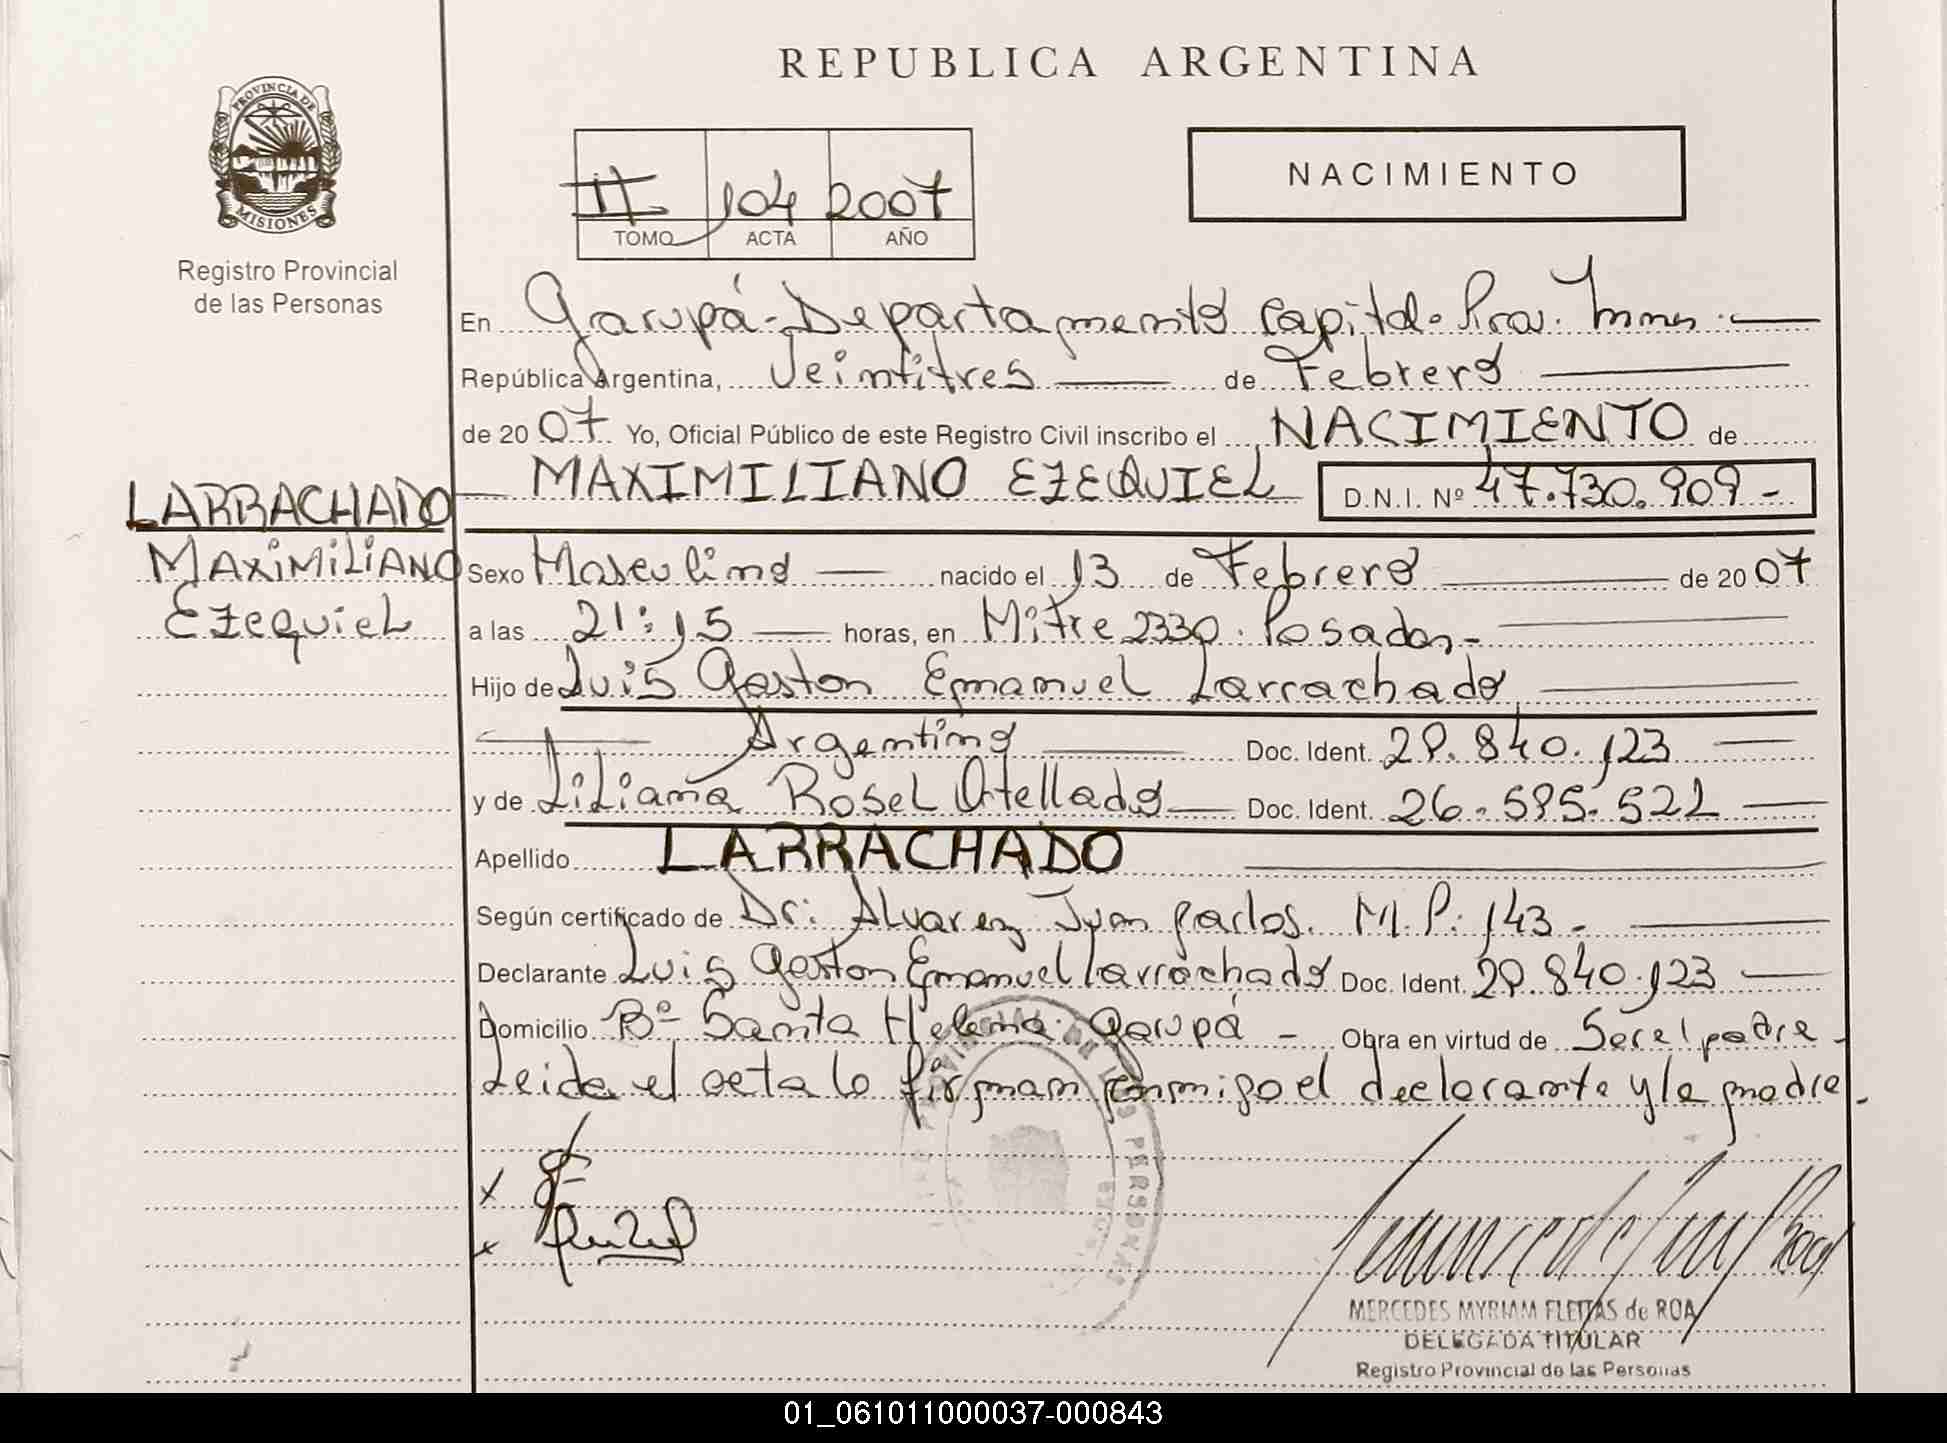 REPUBLICA ARGENTINA
PROVINCIA DE
MISIONES
Registro Provincial
de las Personas
II 104 2007
TOMO ACTA AÑO
NACIMIENTO
En Garupá - Departamento Capital. Prov. Mnes. -
República Argentina, Veintitres de Febrero
de 2007 Yo, Oficial Público de este Registro Civil inscribo el NACIMIENTO de
MAXIMILIANO EZEQUIEL D.N.I. Nº 47.730.909 -
LARRACHADO
MAXiMiLiANO
EzequieL
Sexo Masculino nacido el 13 de Febrero de 2007
a las 21:15 horas, en Mitre 2330. Posadas -
Hijo de Luis Gaston Emanuel Larrachado
Argentino Doc. Ident. 29.840.123
y de Liliana Rosel Otellado Doc. Ident. 26.595.522
Apellido LARRACHADO
Según certificado de Dr: Alvarez Juan Carlos. M.P: 143 -
Declarante Luis Gaston Emanuel Larrachado Doc. Ident. 29.840.123
Domicilio Bº Santa Helena. Garupá - Obra en virtud de Ser el padre -
Leida el acta lo firman conmigo el declarante y la madre.
x
x
PROVINCIAL DE LAS PERSONAS
MERCEDES MYRIAM FLEITAS de ROA
DELEGADA TITULAR
Registro Provincial de las Personas
01_061011000037-000843